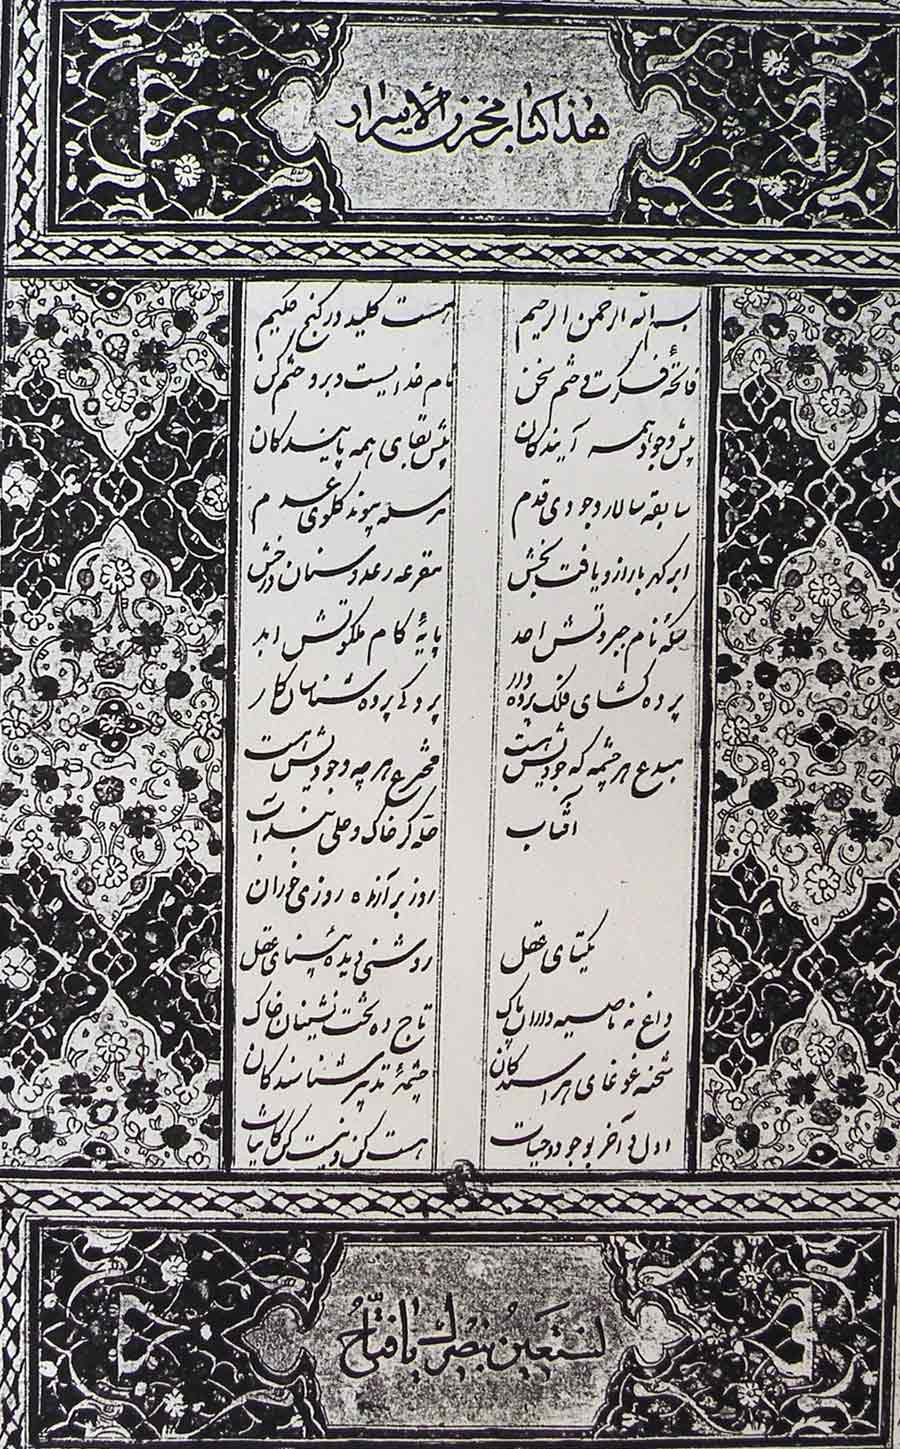 هذا کتاب مخزن الأسرار
بسم الله الرحمن الرحیم هست کلید در گنج حکیم
فاتحۀ فکرت و ختم سخن نام خدایست و برو ختم کن
پیش وجود همه آیندگان پیش بقای همه پایندگان
سابقه سالار وجودی قدم مرسله پیوند گلوی عدم
ابر گهر بار ازو یافت بخش مقرعه رعد دستان درخش
سکۀ نام جبروتش احد پایۀ کام ملکوتش ابد
پرده گشای فلک پرده دار پردگی پرده شناسان کار
مبدع هر چشمه که جودیش هست مخترع هر چه وجودیش است
آفتاب حله گر خاک و حلی بند آب
روز بر آرنده روزی خوران
یکتای عقل روشنی دیده بینای عقل
داغ نه ناصیه داران پاک تاج ده تخت نشینان خاک
شحنه غوغای هراسندگان چشمۀ تدبیر شناسندگان
اول و آخر بوجود و حیات هست کن و نیست کن کاینات
نستعین بنصرک یا فتّاح